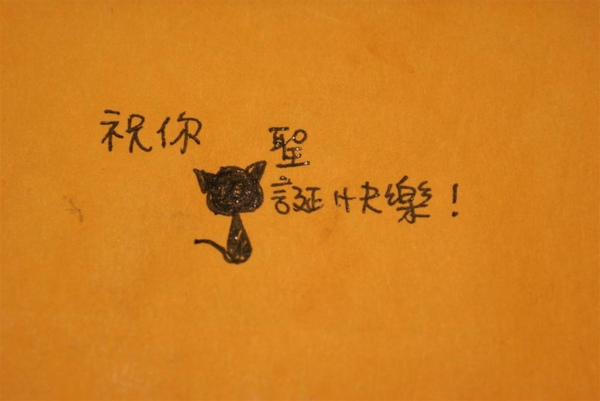 祝你 聖
誕快樂！